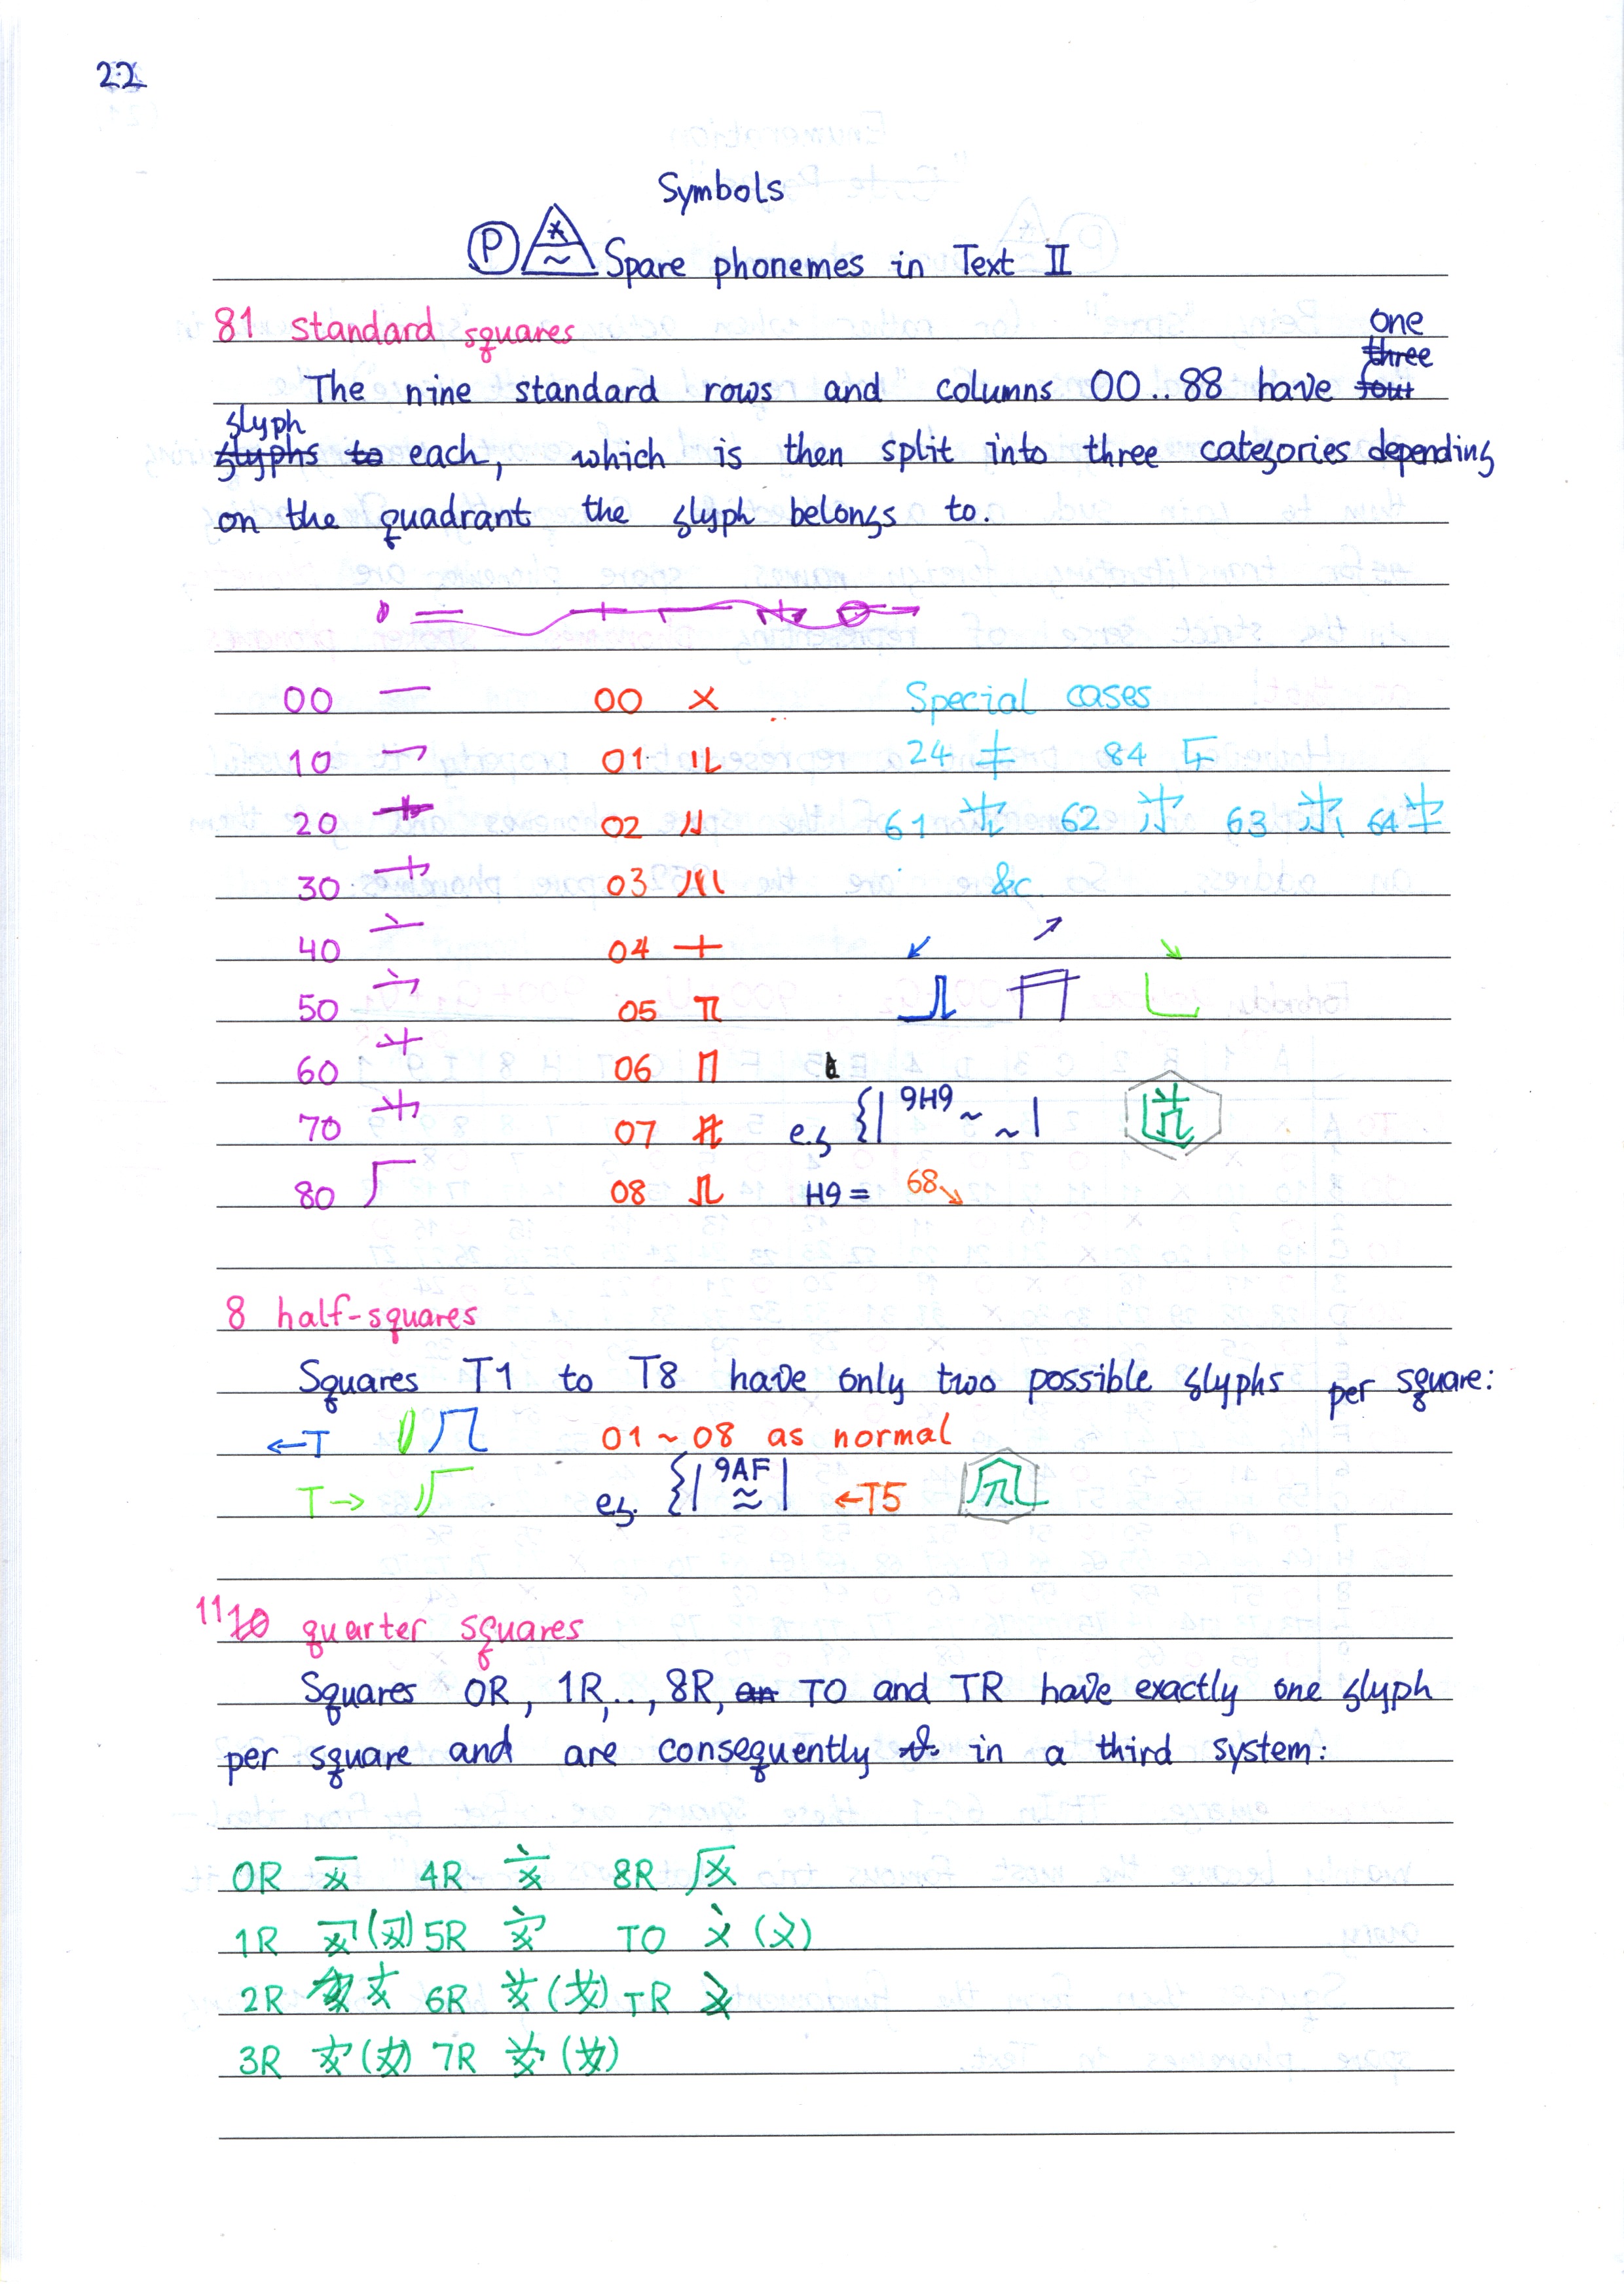 22
Symbols
P * ~ Spare phonemes in Text II
81 standard squares
one
three
The nine standard rows and columns 00..88 have four
glyph
glyphs to each, which is then split into three categories depending
on the quadrant the glyph belongs to.
00 00 Special cases
10 01 24 84
20 02 61 62 63 64
30 03 &c
40 04 ↙ ↗ ↘
50 05
60 06
70 07 e.g {| 9H9 ~ ~ |
80 08 H9 = 68↘
8 half-squares
Squares T1 to T8 have only two possible glyphs per square:
←T 01 ~ 08 as normal
T→ eg. {| 9AF ≈ | ←T5
11 10 quarter squares
Squares 0R, 1R,.., 8R, an T0 and TR have exactly one glyph
per square and are consequently in a third system:
0R 4R 8R
1R 5R T0
2R 6R TR
3R 7R